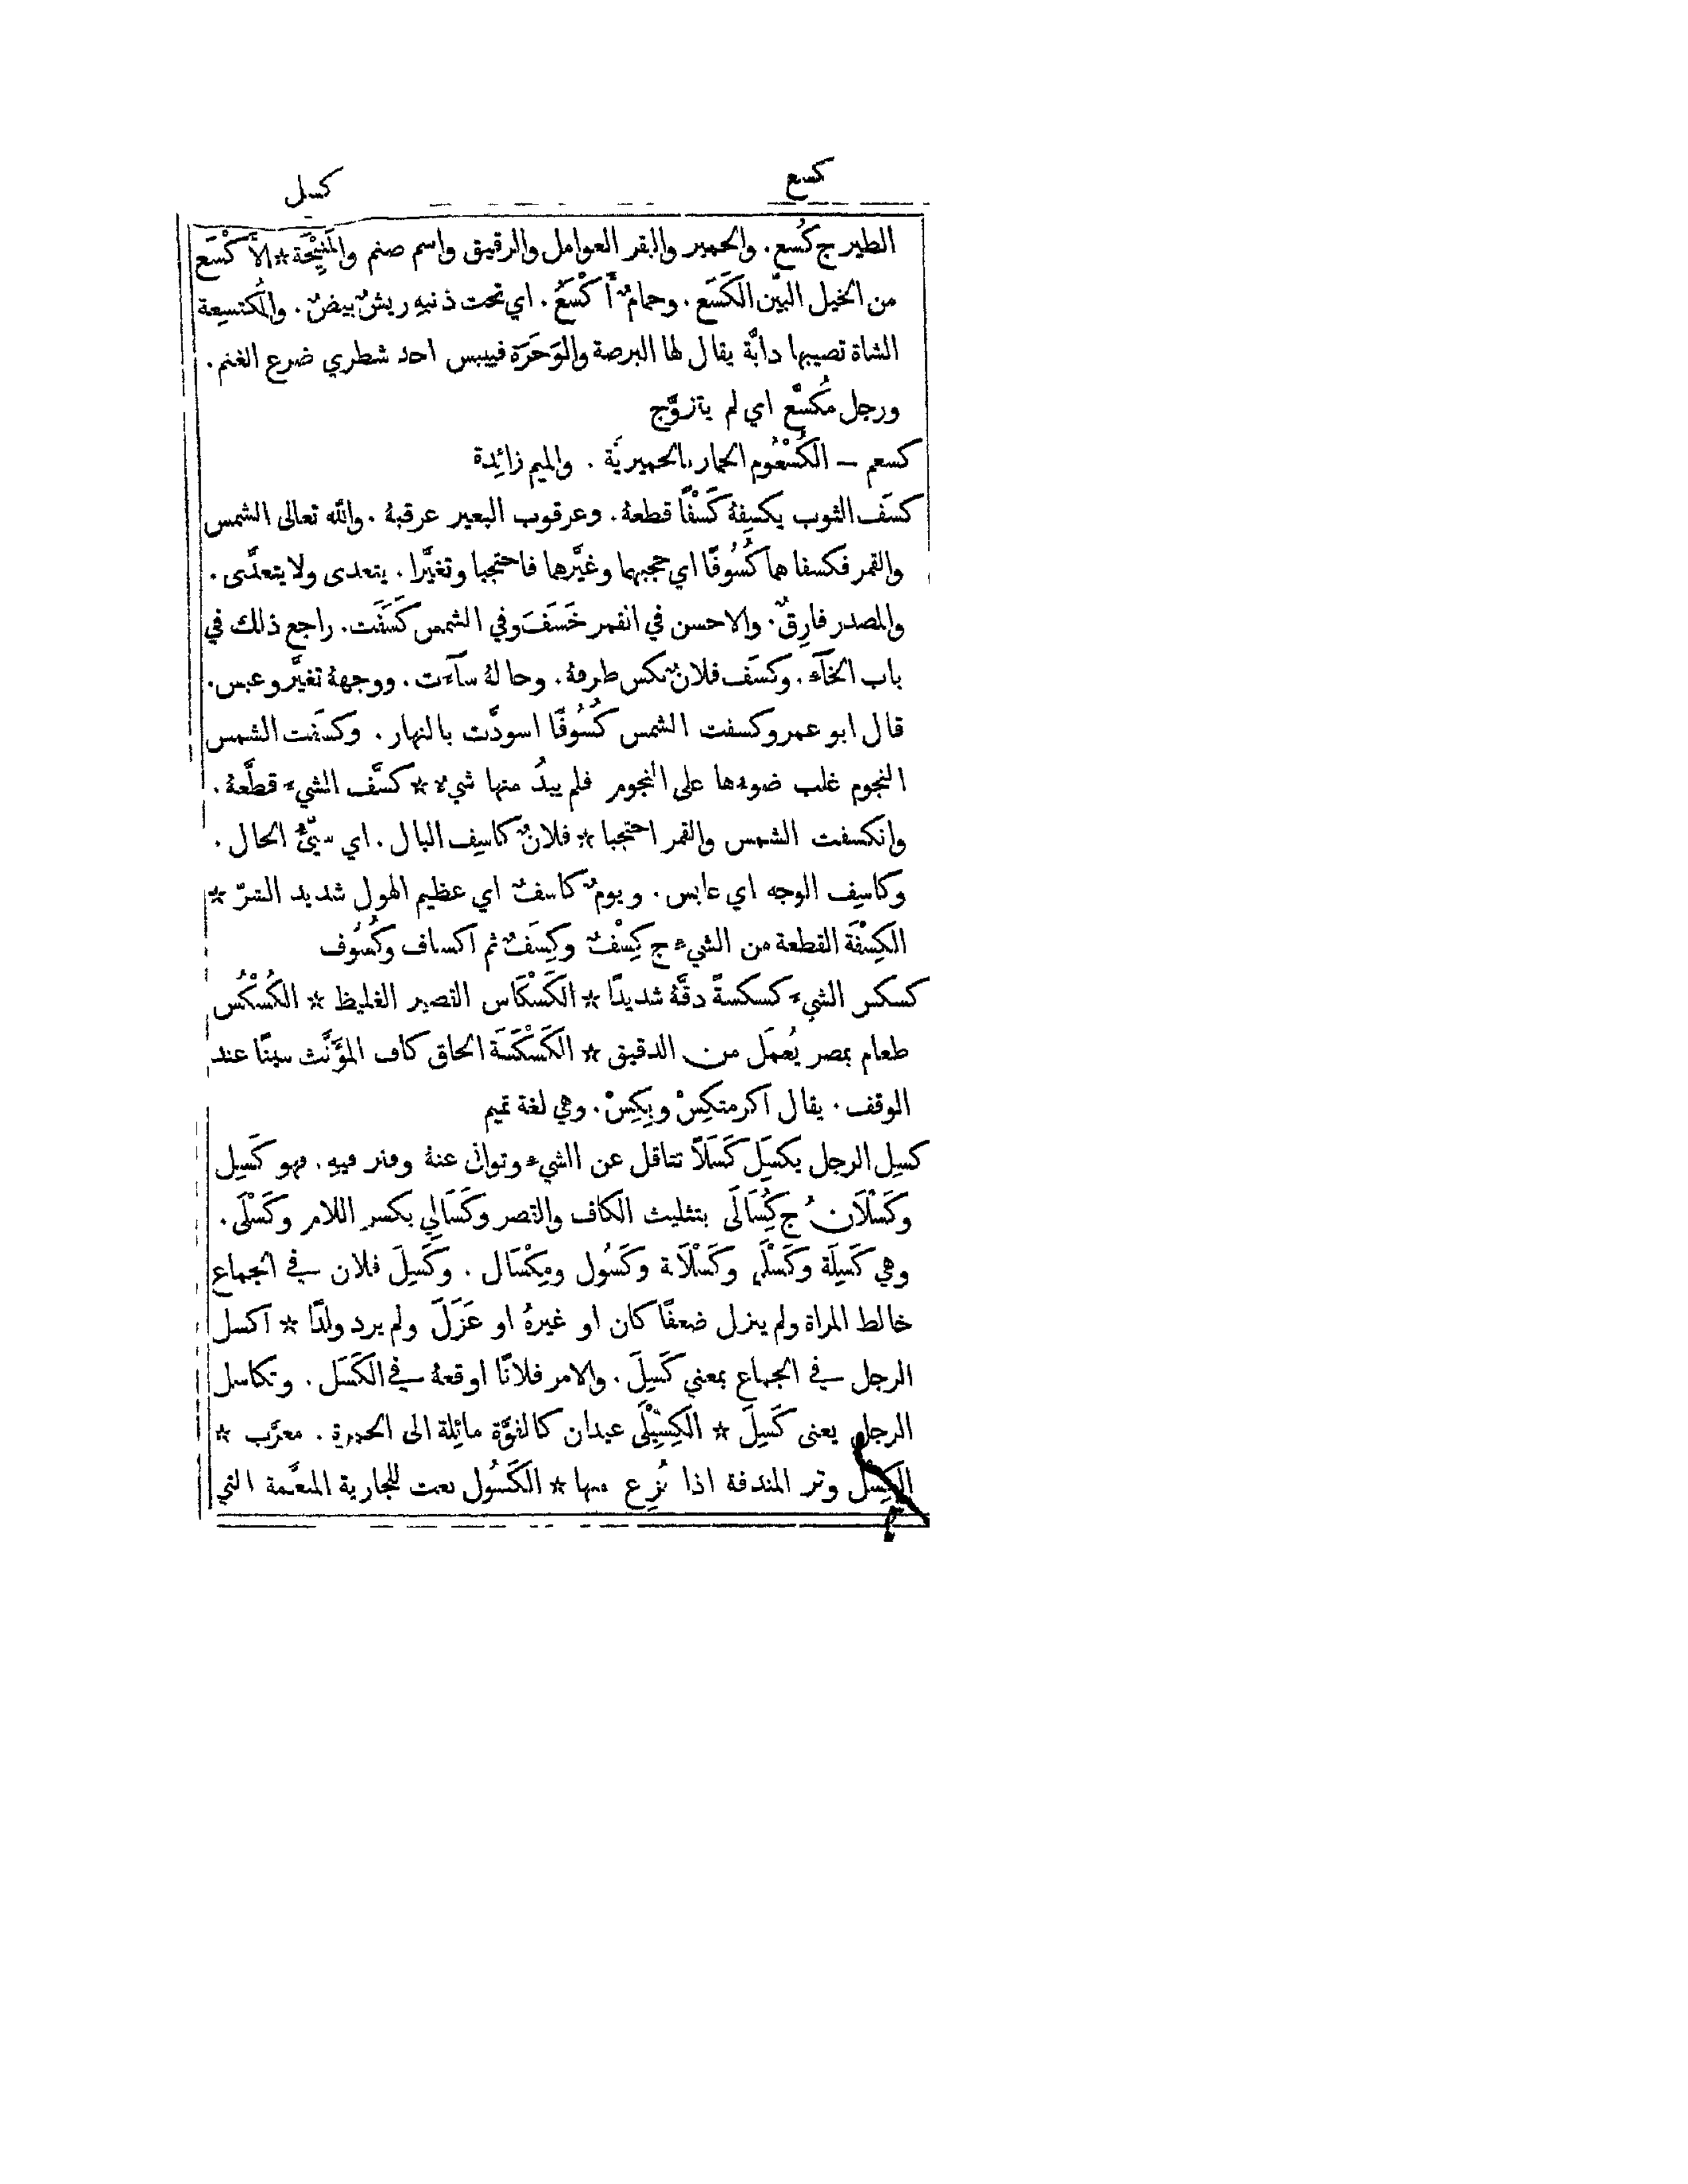 كسع كسل
الطير ج كُسع. والحمير والبقر العوامل والرقيق واسم صنم والمَنِيْحَة ☆ الأَكْسَع
من الخيل البيّن الكَسَع. وحمامٌ أَكْسَعُ. اي تحت ذنبهِ ريشٌ بيضٌ. والمُكتسِعة
الشاة تصيبها دابَّة يقال لها البرصة والوَحَرَة فييبس احد شطري ضرع الغنم.
ورجل مُكَسَّع اي لم يتزوَّج
كسعم — الكُسْعُوم الحمار بالحميريَّة. والميم زائِدة
كسَف الثوب يكسِفهُ كَسْفًا قطعهُ. وعرقوب البعير عرقبهُ. والله تعالى الشمس
والقمر فكسفا هما كُسُوفًا اي حجبهما وغيَّرهما فاحتجبا وتغيَّرا. يتعدى ولا يتعدَّى.
والمصدر فارِقٌ. والاحسن في القمر خَسَفَ وفي الشمس كَسَفَت. راجع ذلك في
باب الخآء. وكسَف فلانٌ نكس طرفهُ. وحالهُ سآءَت. ووجههُ تغيَّر وعبس.
قال ابو عمرو كسفت الشمس كُسُوفًا اسودَّت بالنهار. وكسَفت الشمس
النجوم غلب ضوءها على النجوم فلم يبدُ منها شيءٌ ☆ كسَّف الشيءَ قطَّعهُ.
وانكسفت الشمس والقمر احتجبا ☆ فلانٌ كاسِف البال. اي سيّئُ الحال.
وكاسِف الوجه اي عابس. ويومٌ كاسفٌ اي عظيم الهول شديد الشرّ ☆
الكِسْفَة القطعة من الشيءِ ج كِسْفٌ وكِسَفٌ ثم اكساف وكُسُوف
كسكس الشيءَ كسكسةً دقَّهُ شديدًا ☆ الكَسْكَاس القصير الغليظ ☆ الكُسْكُس
طعام بمصر يُعمَل من الدقيق ☆ الكَسْكَسَة الحاق كاف المؤَنَّث سينًا عند
الوقف. يقال اكرمتكِسْ وبِكِسْ. وهي لغة تميم
كسِل الرجل يكسَل كَسَلاً تثاقل عن الشيءِ وتوانى عنهُ وفتر فيهِ. فهو كَسِل
وكَسْلَان ج كُسَالَى بتثليث الكاف والقصر وكَسَالِي بكسر اللام وكَسْلَى.
وهي كَسِلَة وكَسْلَى وكَسْلَانة وكَسُول ومِكْسَال. وكَسِلَ فلان في الجماع
خالط المراة ولم ينزل ضعفًا كان او غيرهُ او عَزَلَ ولم يرد ولدًا ☆ اكسل
الرجل في الجماع بمعنى كَسِلَ. والامر فلانًا اوقعهُ في الكَسَل. وتكاسل
الرجل يعنى كَسِلَ ☆ الكِسِيْلَى عيدان كالفوَّة مائِلة الى الحمرة. معرَّب ☆
الكِسْل وتر المندفة اذا نُزِع منها ☆ الكَسُول نعت للجارية المنعَّمة التي